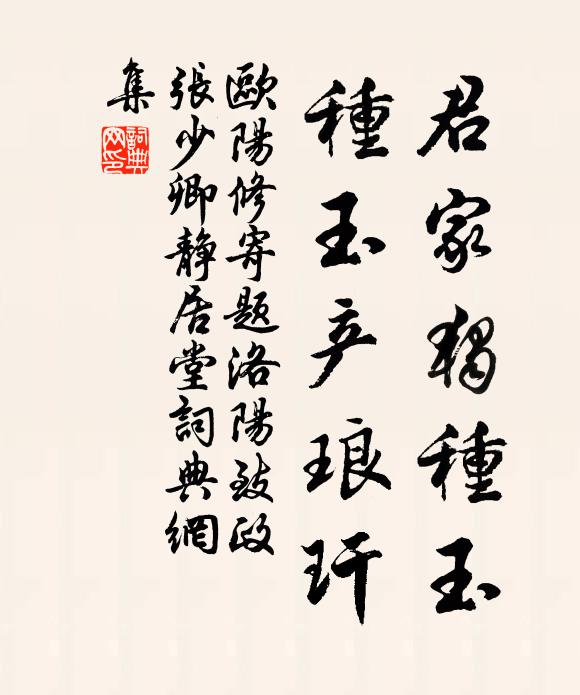 君家獨種玉
種玉产琅玕
歐陽修寄題洛陽致政
張少卿靜居堂詞典網
集
詞典
网印